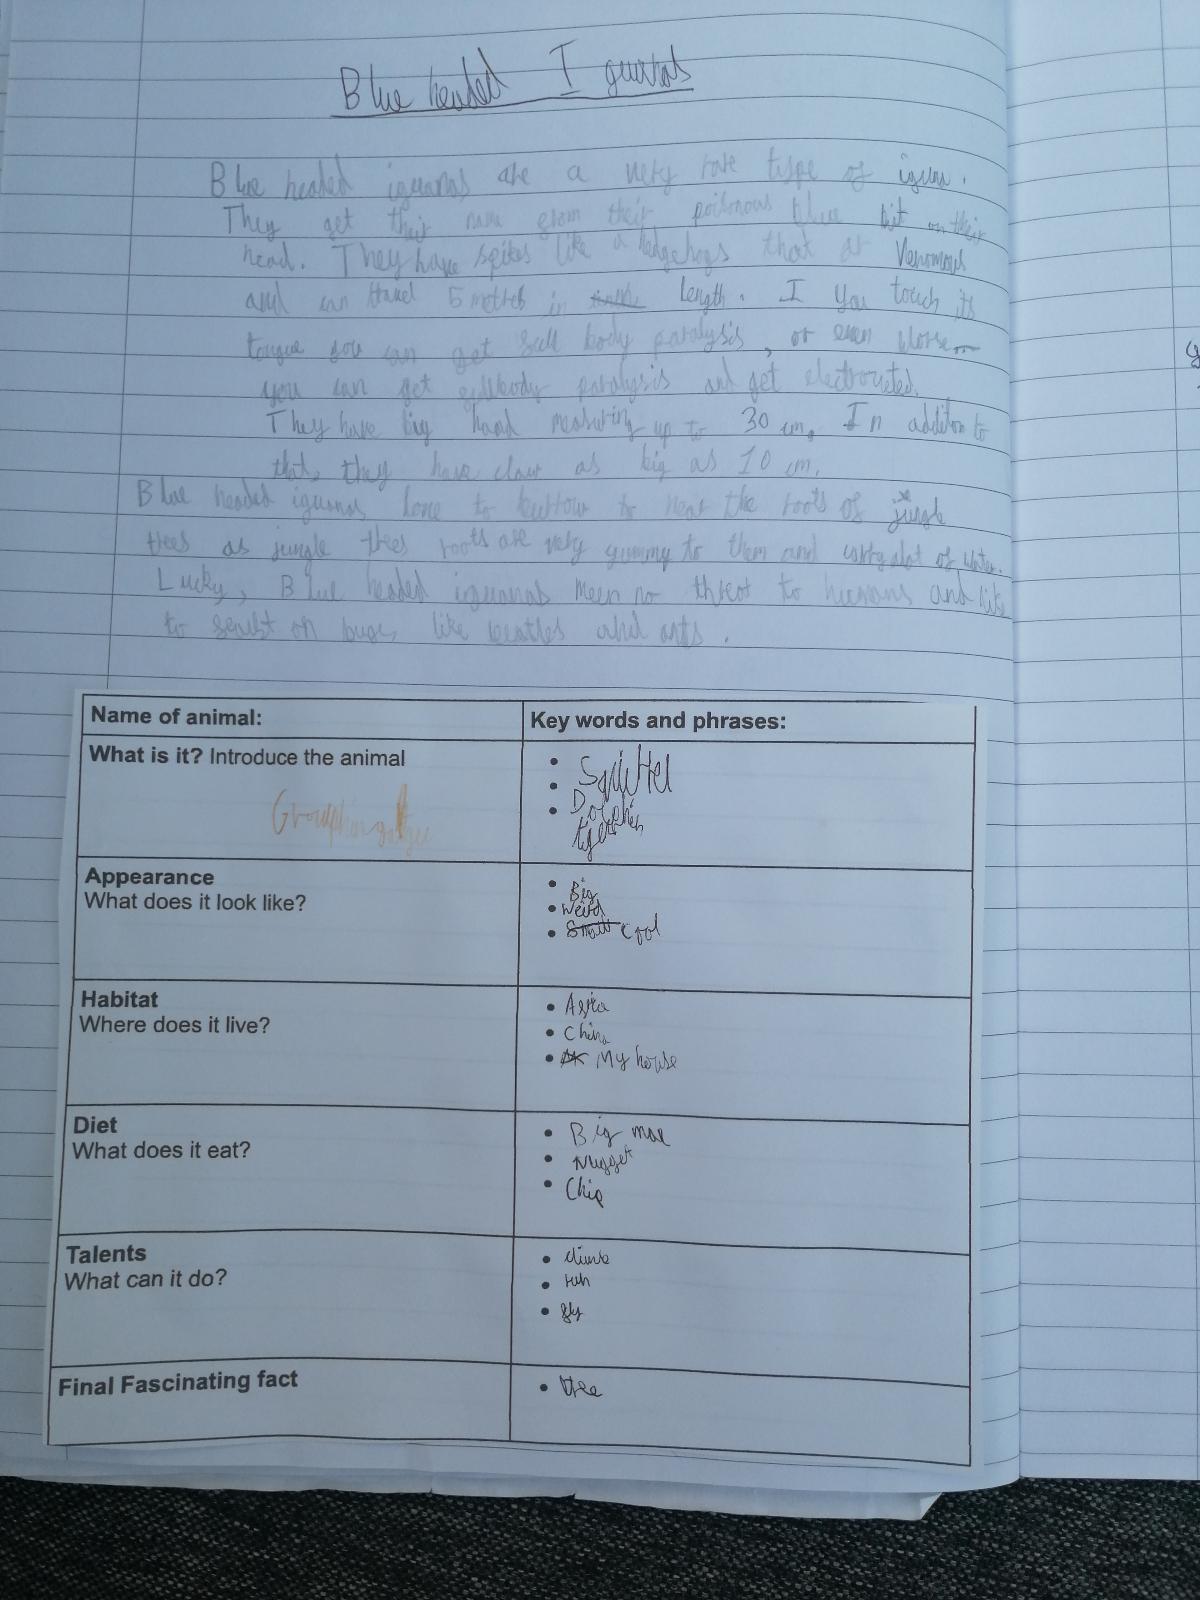 Blue headed Iguanas
Blue headed iguanas are a very rare type of iguana.
They get their name from their poisonous blue bit on their
head. They have spikes like a hedgehogs that are Venomous
and can travel 5 metres in length. If you touch its
tongue you can get full body paralysis, or even worse
you can get fullbody paralysis and get electrocuted.
They have big hand measuring up to 30 cm. In addition to
that, they have claw as big as 10 cm.
Blue headed iguanas love to burrow to near the roots of jungle
trees as jungle trees roots are very yummy to them and carry alot of water.
Lucky, Blue headed iguanas meen no threat to humans and like
to on bugs like beatles and ants.
Name of animal:
Key words and phrases:
What is it? Introduce the animal
Squirrel
Dolphin
tiger
Appearance
What does it look like?
Big
Weird
Small Cool
Habitat
Where does it live?
China
My house
Diet
What does it eat?
Big mac
Nugget
Chip
Talents
What can it do?
climb
run
fly
Final Fascinating fact